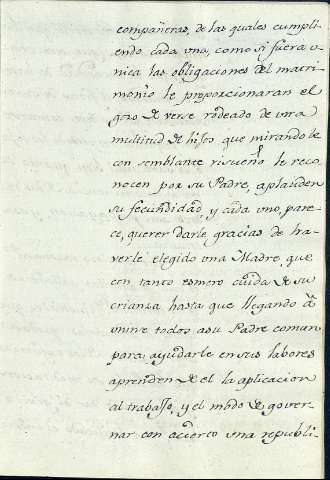 compañeras, de las quales cumpli
endo cada una, como si fuera u
nica las obligaciones del matri
monio le proporcionaran el
gozo de verse rodeado de una
multitud de hijos que mirandole
con semblante risueño le reco
nocen por su Padre, aplauden
su fecundidad, y cada uno, pare
ce, querer darle gracias de ha
verle elegido una Madre, que
con tanto esmero cuida de su
crianza hasta que llegando à
unirse todos asu Padre comun
para ayudarle en sus labores
aprenden de el la aplicacion
al trabajo, y el modo de gover
nar con acierto una republi